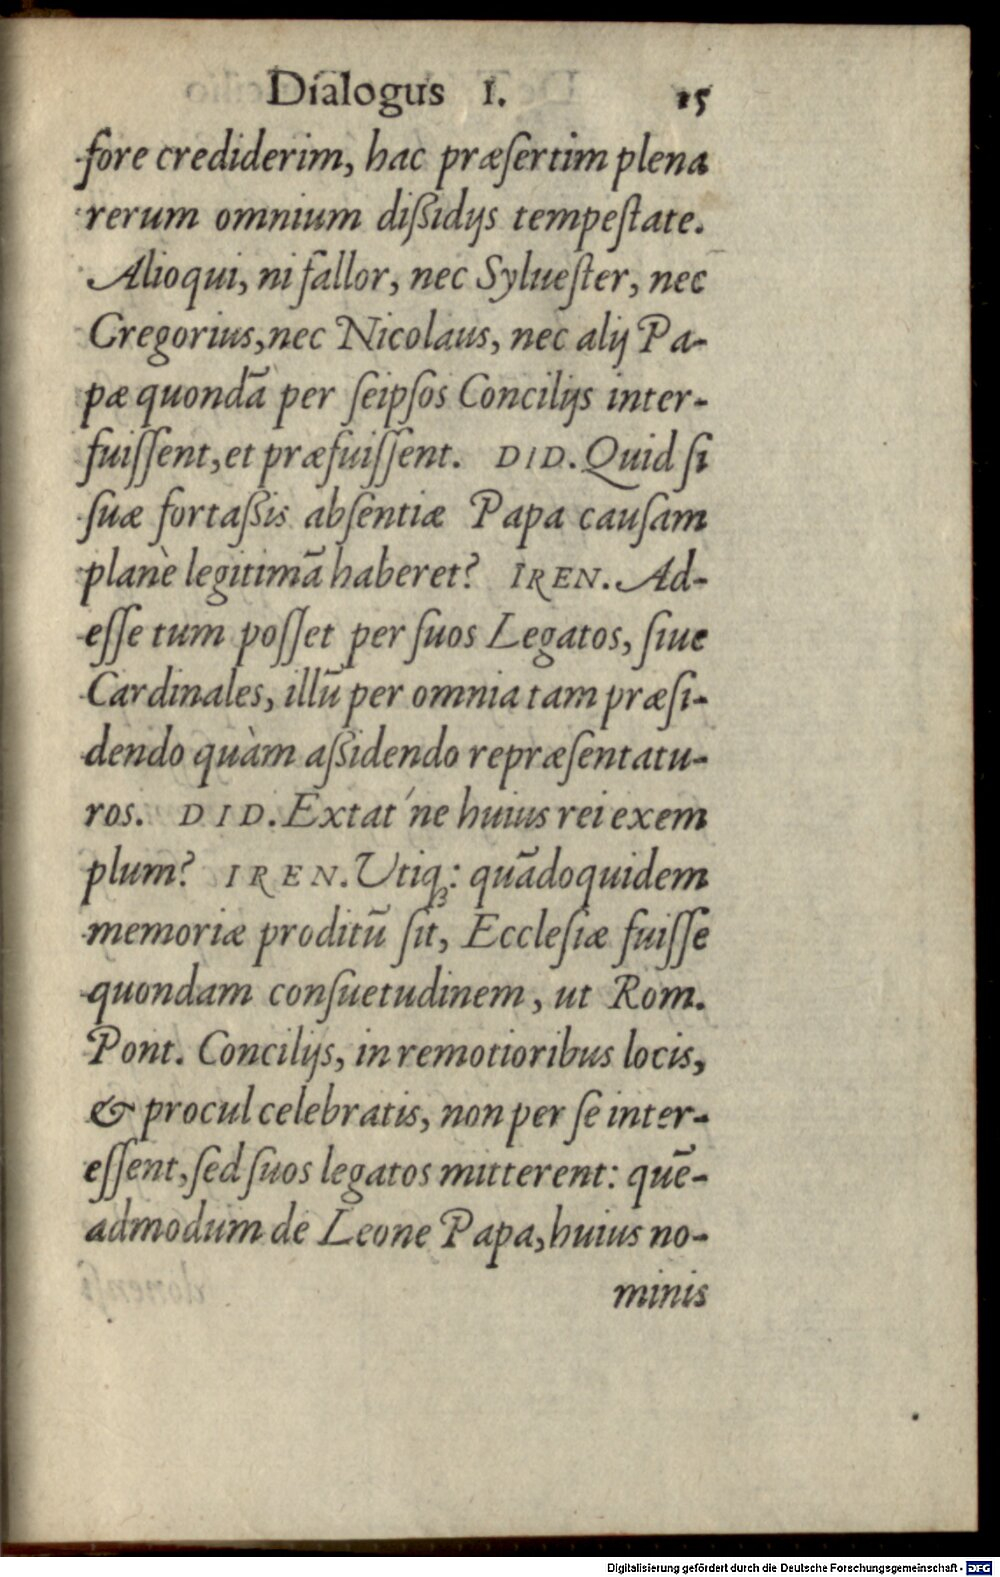 Dialogus I. 15
fore crediderim, hac præſertim plena
rerum omnium dißidijs tempeſtate.
Alioqui, ni fallor, nec Sylueſter, nec
Gregorius, nec Nicolaus, nec alij Pa-
pæ quondā per ſeipſos Concilijs inter-
fuiſſent, et præfuiſſent. DID. Quid ſi
ſuæ fortaßis abſentiæ Papa cauſam
planè legitimā haberet? IREN. Ad-
eſſe tum poſſet per ſuos Legatos, ſiue
Cardinales, illū per omnia tam præſi-
dendo quàm aßidendo repræſentatu-
ros. DID. Extat'ne huius rei exem
plum? IREN. Utiqꝫ: quādoquidem
memoriæ proditū ſit, Eccleſiæ fuiſſe
quondam conſuetudinem, ut Rom.
Pont. Concilijs, in remotioribus locis,
& procul celebratis, non per ſe inter-
eſſent, ſed ſuos legatos mitterent: quē-
admodum de Leone Papa, huius no-
minis
Digitalisierung gefördert durch die Deutsche Forschungsgemeinschaft - DFG